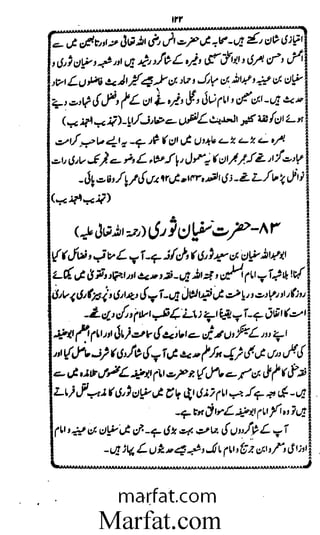 ۱۲۲
امتیازی شان رکھتے ہیں۔ صحابہ میں حضرت انس رضی اللہ تعالیٰ عنہ اور تابعین میں سے
اعمش و حسن بصری و ابو اسحٰق سبیعی وغیرہ کے شاگرد رشید ہیں اور شعبہ و سفیان ثوری و
سفیان بن عیینہ و عبداللہ بن مبارک و حماد بن سلمہ جیسے کثیر الحدیث فاضلوں کے استاد
حدیث ہیں۔ ابن معین و امام نسائی و عجلی وغیرہ نے ان کے علم و فضل کی شہادت دیتے
ہوئے ان کو ثقہ کثیر الحدیث کے لفظوں سے متعارف کرایا۔ (تہذیب التہذیب)
بصرے کے بڑے بڑے عابدوں میں ان کا شمار ہے۔ یہ ایسے صاحب کرامت
عبادت گزار تھے کہ عمر بھر ان کا یہ معمول رہا کہ عشاء کے وضو سے فجر تک ساری رات
نوافل پڑھا کرتے تھے۔ ذی القعدہ ۱۴۳ھ میں ۹۷ برس کی عمر پا کر وفات پائی۔
(تہذیب التہذیب)
۸۳- حضرت سفیان ثوری (رحمۃ اللہ تعالیٰ علیہ)
ابو عبداللہ سفیان بن سعید ثوری کا وطن کوفہ ہے۔ آپ کے مناقب و فضائل کا کیا
کہنا! بلاشبہ آپ امام المسلمین و حجۃ اللہ ہیں۔ فقہ و حدیث اور اجتہاد و تقویٰ میں یکتائے
روزگار اور عبادت و ریاضت میں فقید المثال ہیں۔ آپ کی دینداری و پرہیزگاری پر ساری
امت کا اتفاق ہے۔ آپ یقیناً اپنے زمانے کے قطب اسلام و رکن دین تھے۔
اپنے دور کے سینکڑوں محدثین سے احادیث کی سماعت فرمائی اور امام اعظم ابو حنیفہ
کی مجلس درس میں بھی شریک ہو کر علم حدیث میں آپ کی شاگردی کا شرف حاصل کیا اور
فقہ حنفی کا علم علی بن مسہر سے حاصل کیا جو حضرت امام ابو حنیفہ کے مخصوص تلامذہ میں سے
ہیں۔ یہی وجہ ہے کہ جب امام ترمذی اپنی جامع میں سفیان ثوری کا مذہب نقل فرماتے
ہیں تو وہ اکثر امام ابو حنیفہ کے موافق ہوتا ہے۔
آپ کے شاگردوں کی جماعت بہت بڑی ہے۔ جن میں سفیان بن عیینہ و امام
اوزاعی و معمر و ابن جریج و امام مالک و شعبہ جیسے حدیثوں کے پہاڑ ہیں۔
marfat.com
Marfat.com